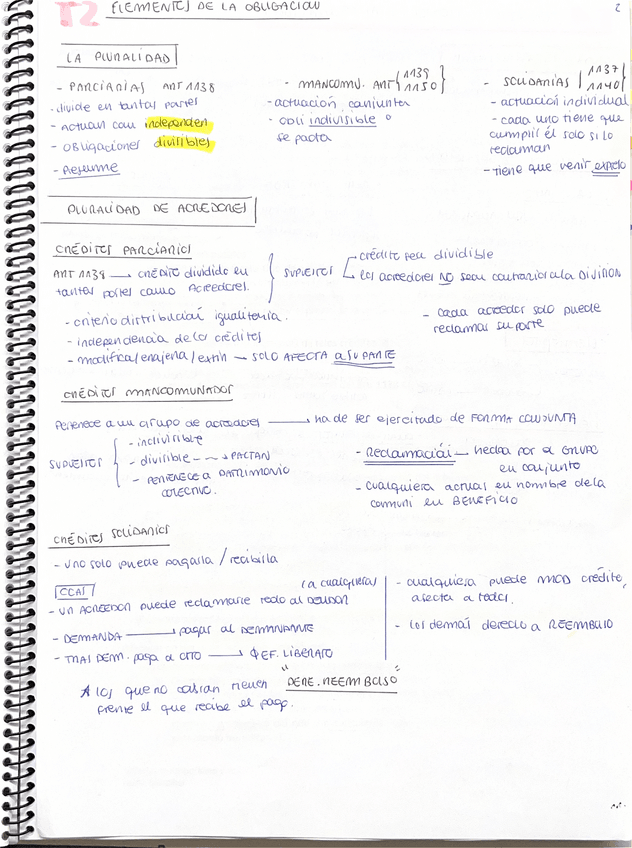 T2 ELEMENTOS DE LA OBLIGACION
2
LA PLURALIDAD
- PARCIARIAS ART 1138
- divide en tantas partes
- Actuan con independen
- OBLIGACIONES divisibles
- Resume
- MANCOMU. ART { 1139 1150 }
- actuación conjunta
- obli indivisible o
se pacta
- SOLIDARIAS { 1137 1140 }
- actuación individual
- cada uno tiene que
cumplir él solo si lo
reclaman
- tiene que venir expreso
PLURALIDAD DE ACREDORES
CRÉDITOS PARCIARIOS
ART 1138 → CRÉDITO dividido en
tantas partes como Acreedores.
SUPUESTOS
crédito sea dividible
los acreedores NO sean contrarios a la DIVISION
- criterio distribución igualitaria.
- independencia de los créditos
- modifica/enajena/extin → SOLO AFECTA a SU PARTE
- cada acreedor solo puede
reclamar su parte
CRÉDITOS MANCOMUNADOS
Pertenece a un grupo de acreedores → ha de ser ejercitado de FORMA CONJUNTA
SUPUESTOS
- indivisible
- divisible --→ PACTAN
- PERTENECE A PATRIMONIO
COLECTIVO.
- Reclamación → hecha por el GRUPO
en conjunto
- cualquiera actual en nombre de la
comuni en BENEFICIO
CRÉDITOS SOLIDARIOS
- uno solo puede pagarla / recibirla
CCAT
(a cualquiera)
- UN ACREEDOR puede reclamarle todo al DEUDOR
- DEMANDA → pagar al DEMANDANTE
- TRAS DEM. paga a OTRO → EF. LIBERATO
- cualquiera puede MOD crédito,
afecta a todos.
- los demás derecho a REEMBOLSO
A los que no cobran tienen "DERE. REEMBOLSO"
frente el que recibe el pago.